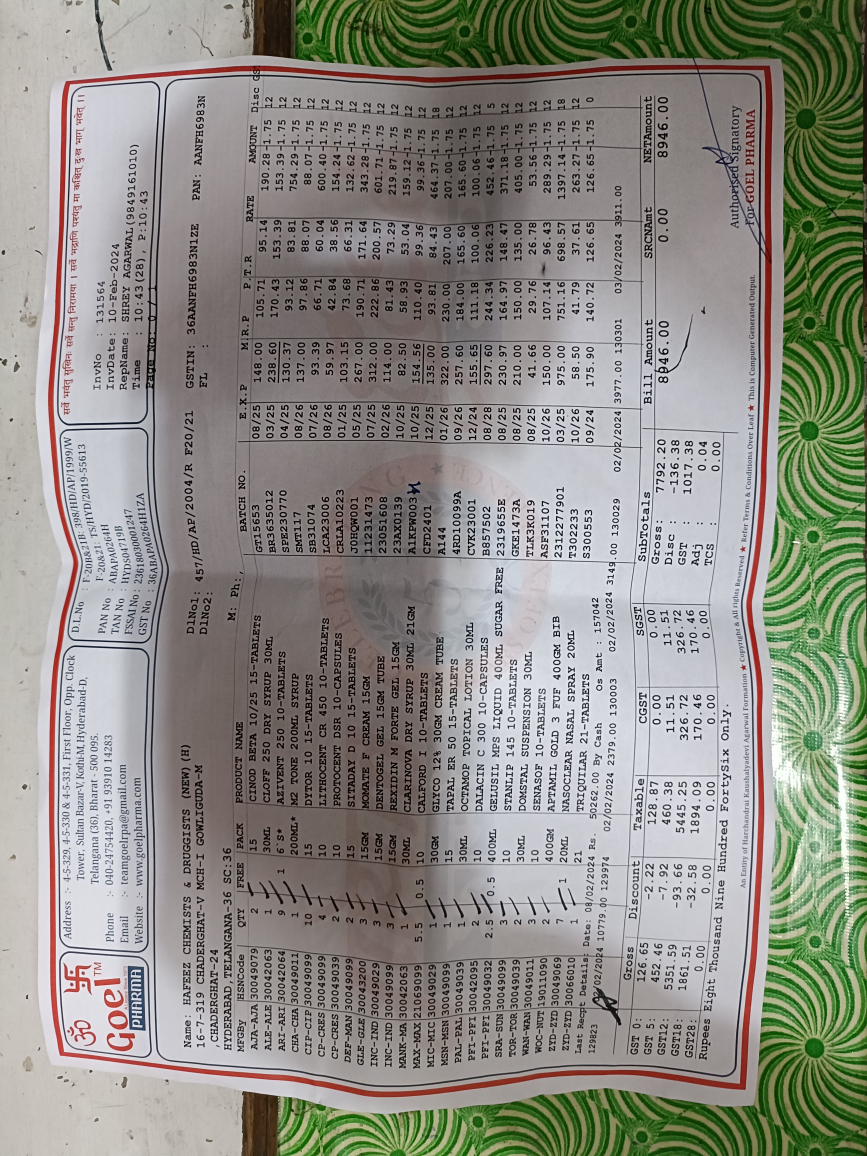 सर्वे भवंतु सुखिनः सर्वे सन्तु निरामया । सर्वे भद्राणि पश्यंतु मा कश्चित् दुःख भाग् भवेत् ।।
Goel™
PHARMA
Address :- 4-5-329, 4-5-330 & 4-5-331, First Floor, Opp. Clock
Tower, Sultan Bazar-V, Kothi-M,Hyderabad-D,
Telangana (36), Bharat - 500 095.
Phone :- 040-24754420, +91 93910 14283
Email :- teamgoelrpa@gmail.com
Website :- www.goelpharma.com
D.L.No : F-20B&21B: 398/HD/AP/1999/W
F-20&21 : TS/HYD/2019-55613
PAN No : ABAPA0264H
TAN No : HYDS04719B
FSSAI No : 23618030001247
GST No : 36ABAPA0264H1ZA
InvNo : 131564
InvDate : 10-Feb-2024
RepName: SHREY AGARWAL(9849161010)
Time : 10:43(28), P:10:43
Page No: 0 / 1
Name: HAFEEZ CHEMISTS & DRUGGISTS (NEW) (H)
16-7-319 CHADERGHAT-V MCH-I GOWLIGUDA-M
,CHADERGHAT-24
HYDERABAD,TELANGANA-36 SC:36
DlNo1: 457/HD/AP/2004/R F20/21
DlNo2:
M: Ph:,
GSTIN: 36AANFH6983N1ZE PAN: AANFH6983N
FL :
MFGBy HSNCode QTY FREE PACK PRODUCT NAME BATCH NO. E.X.P M.R.P P.T.R RATE AMOUNT Disc GS
AJA-AJA 30049079 2 15 CINOD BETA 10/25 15-TABLETS GT15653 08/25 148.00 105.71 95.14 190.28 -1.75 12
ALE-ALE 30042063 1 30ML CLOFF 250 DRY SYRUP 30ML BR3635012 03/25 238.60 170.43 153.39 153.39 -1.75 12
ARI-ARI 30042064 9 1 6`S* AZIVENT 250 10-TABLETS SPE230770 04/25 130.37 93.12 83.81 754.29 -1.75 12
CHA-CHA 30049011 1 200ML* M2 TONE 200ML SYRUP SMT117 08/26 137.00 97.86 88.07 88.07 -1.75 12
CIP-CIP 30049099 10 15 DYTOR 15-TABLETS SB31074 07/26 93.39 66.71 60.04 600.40 -1.75 12
CP-CRES 30049099 4 10 LITHOCENT CR 450 10-TABLETS LCA23006 08/26 59.97 42.84 38.56 154.24 -1.75 12
CP-CRES 30049039 2 10 PROTOCENT DSR 10-CAPSULES CRLA10223 01/25 103.15 73.68 66.31 132.62 -1.75 12
DEF-MAN 30049099 2 15 SITADAY D 10 15-TABLETS JOHQW001 05/25 267.00 190.71 171.64 343.28 -1.75 12
GLE-GLE 30043200 3 15GM MOMATE F CREAM 15GM 11231473 07/25 312.00 222.86 200.57 601.71 -1.75 12
INC-IND 30049029 3 15GM DENTOGEL GEL 15GM TUBE 23051608 02/26 114.00 81.43 73.29 219.87 -1.75 12
INC-IND 30049099 3 15GM REXIDIN M FORTE GEL 15GM 23AX0139 10/25 82.50 58.93 53.04 159.12 -1.75 12
MANK-MA 30042063 1 30ML CLARINOVA DRY SYRUP 30ML 21GM A1KPW003 10/25 154.56 110.40 99.36 99.36 -1.75 12
MAX-MAX 21069099 5.5 0.5 10 CALFORD I 10-TABLETS CFD2401 12/25 135.00 93.81 84.43 464.37 -1.75 18
MIC-MIC 30049029 1 30GM GLYCO 12% 30GM CREAM TUBE A144 01/26 322.00 230.00 207.00 207.00 -1.75 12
MSN-MSN 30049099 1 15 TAPAL ER 50 15-TABLETS 4RD10099A 09/26 257.60 184.00 165.60 165.60 -1.75 12
PAL-PAL 30049039 1 30ML OCTAMOP TOPICAL LOTION 30ML CVK23001 12/24 155.65 111.18 100.06 100.06 -1.75 12
PFI-PFI 30042095 2 10 DALACIN C 300 10-CAPSULES B857502 08/28 297.60 244.34 226.23 452.46 -1.75 5
PFI-PFI 30049032 2.5 0.5 400ML GELUSIL MPS LIQUID 400ML SUGAR FREE 2319655E 08/25 230.97 164.97 148.47 371.18 -1.75 12
SRA-SUN 30049099 3 10 STANLIP 145 10-TABLETS GKE1473A 08/26 210.00 150.00 135.00 405.00 -1.75 12
TOR-TOR 30049039 2 30ML DOMSTAL SUSPENSION 30ML TLK3K019 08/25 41.66 29.76 26.78 53.56 -1.75 12
WAN-WAN 30049011 3 10 SENASOF 10-TABLETS ASF31107 10/26 150.00 107.14 96.43 289.29 -1.75 12
WOC-NUT 19011090 2 400GM APTAMIL GOLD 3 FUF 400GM BIB 2312277901 03/25 975.00 751.16 698.57 1397.14 -1.75 18
ZYD-ZYD 30049069 7 1 20ML NASOCLEAR NASAL SPRAY 20ML T302233 10/26 58.50 41.79 37.61 263.27 -1.75 12
ZYD-ZYD 30066010 1 21 TRIQUILAR 21-TABLETS S300553 09/24 175.90 140.72 126.65 126.65 -1.75 0
Last Recpt Details: Date: 08/02/2024 Rs. 50262.00 By Cash Os Amt : 157042
129823 /02/2024 10779.00 129974 02/02/2024 2379.00 130003 02/02/2024 3149.00 130029 02/02/2024 3977.00 130301 03/02/2024 3911.00
Gross Discount Taxable CGST SGST SubTotals Bill Amount SRCNAmt NETAmount
GST 0: 126.65 -2.22 128.87 0.00 0.00 Gross: 7792.20 8946.00 0.00 8946.00
GST 5: 452.46 -7.92 460.38 11.51 11.51 Disc : -136.38
GST12: 5351.59 -93.66 5445.25 326.72 326.72 GST : 1017.38
GST18: 1861.51 -32.58 1894.09 170.46 170.46 Adj : 0.04
GST28: 0.00 0.00 0.00 0.00 0.00 TCS : 0.00
Rupees Eight Thousand Nine Hundred FortySix Only.
Authorised Signatory
For GOEL PHARMA
An Entiry of Harchandrai Kaushalyadevi Agarwal Formation ★ Copyright & All rights Reserved ★ Refer Terms & Conditions Over Leaf ★ This is Computer Generated Output.